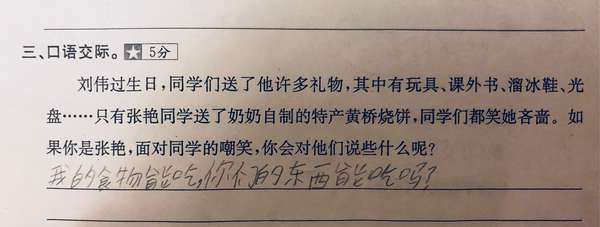 三、口语交际。★ 5分
刘伟过生日,同学们送了他许多礼物,其中有玩具、课外书、溜冰鞋、光
盘……只有张艳同学送了奶奶自制的特产黄桥烧饼,同学们都笑她吝啬。如
果你是张艳,面对同学的嘲笑,你会对他们说些什么呢?
我的食物能吃,你们的东西能吃吗?